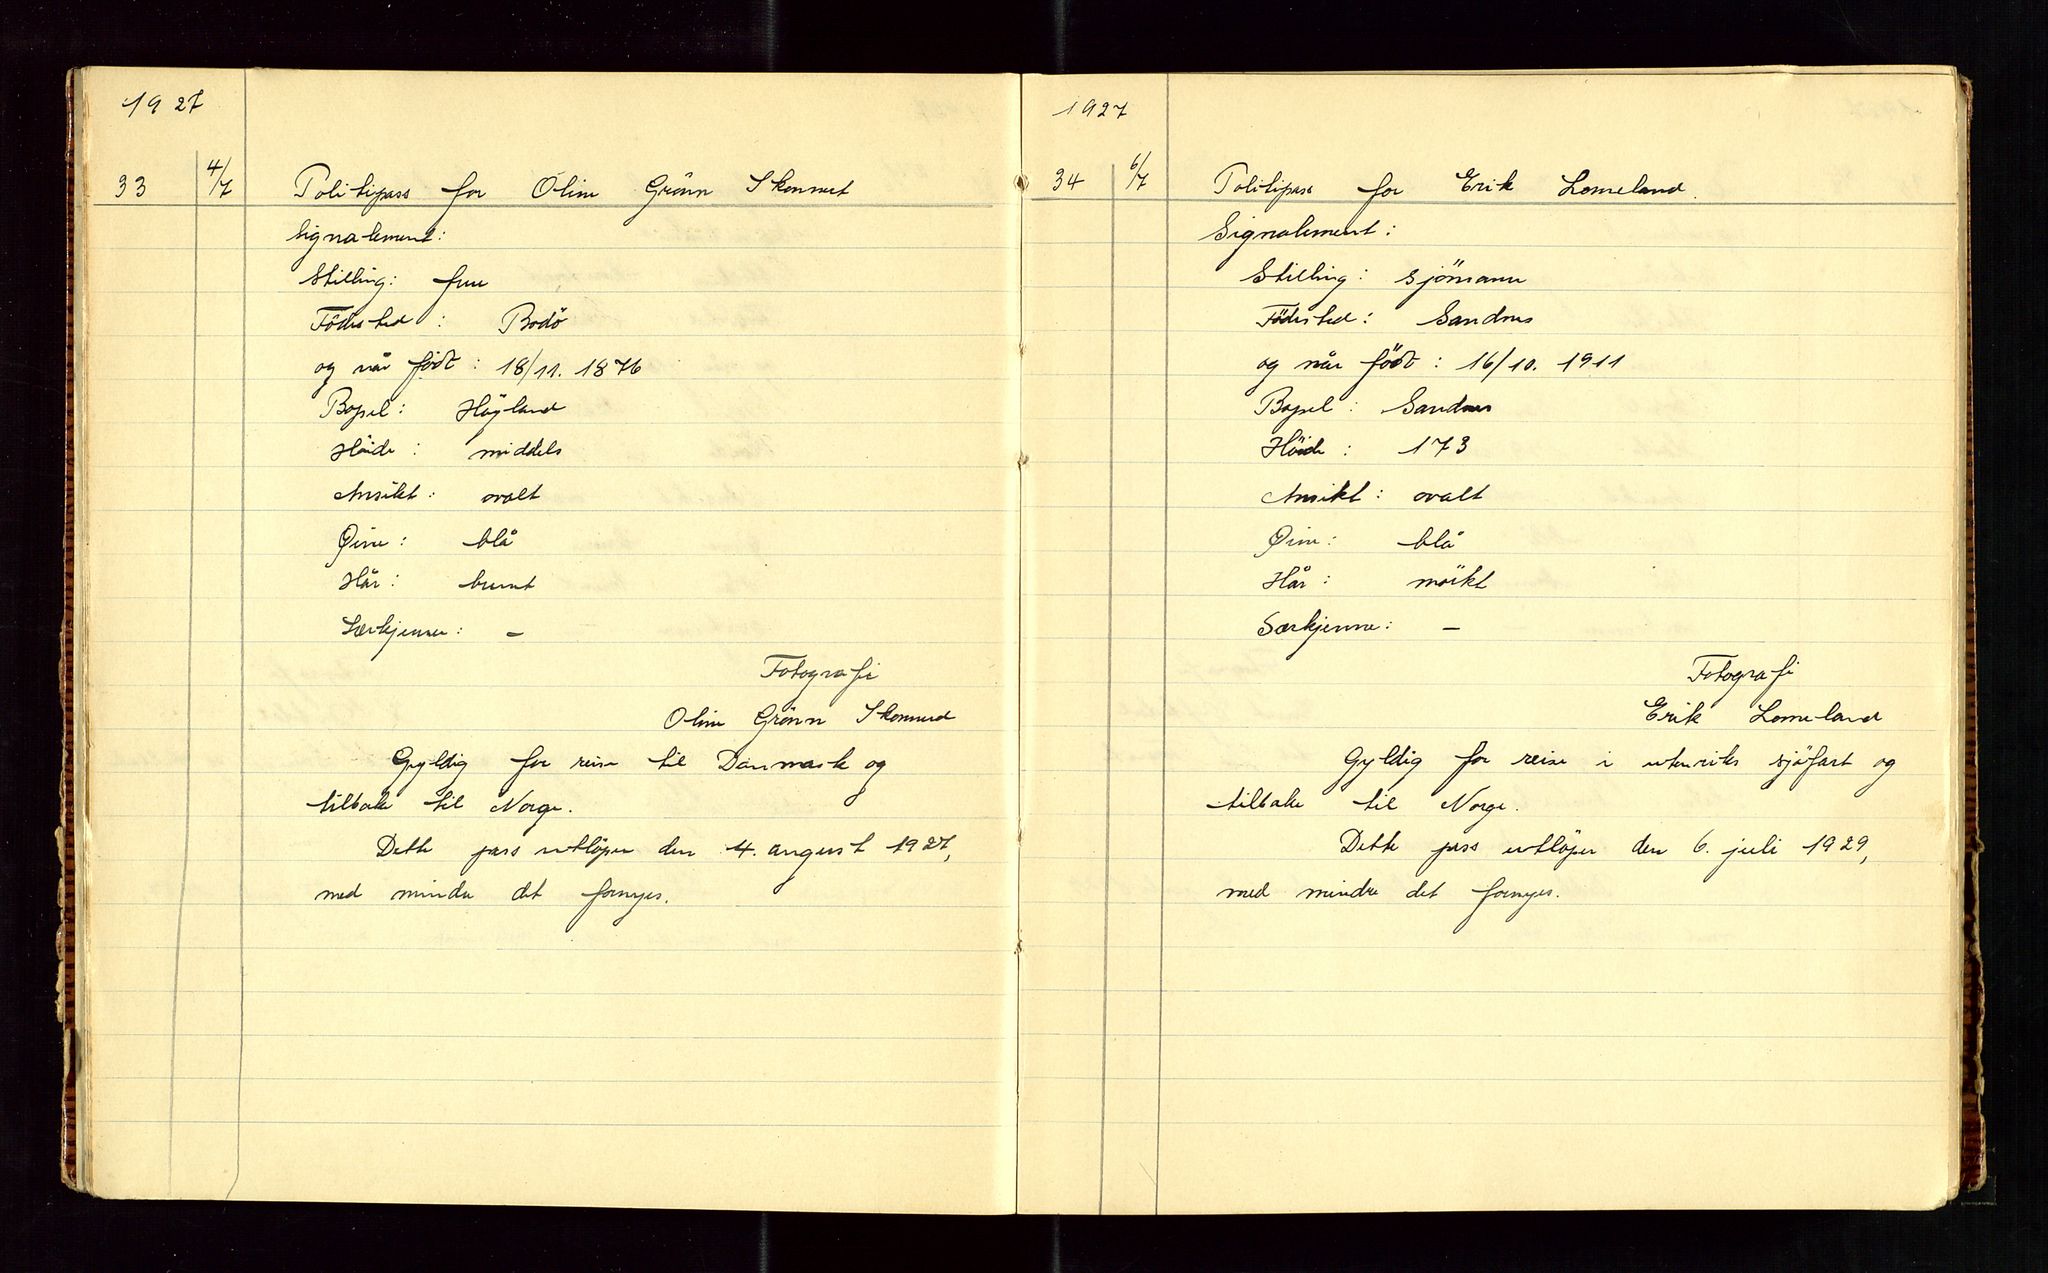 1927
33 4/7 Politipass for Oline Grönn Skonnert
Signalement:
Stilling: frue
Födested: Bodö
og når födt: 18/11. 1876
Bopel: Høyland
Höide: middels
Ansikt: ovalt
Øine: blå
Hår: brunt
Særkjenne: –
Fotografi
Oline Grönn Skonnerd
Gyldig for reise til Danmark og
tilbake til Norge.
Dette pass utlöper den 4. august 1927,
med mindre det fornyes.
1927
34 6/7 Politipass for Erik Lomeland.
Signalement:
Stilling: Sjömann
Födested: Sandnes
og når födt: 16/10. 1911
Bopel: Sandnes
Höide: 173
Ansikt: ovalt
Øine: blå
Hår: mörkt
Særkjenne: –
Fotografi
Erik Lomeland
Gyldig for reise i utenriks sjöfart og
tilbake til Norge.
Dette pass utlöper den 6. juli 1929,
med mindre det fornyes.